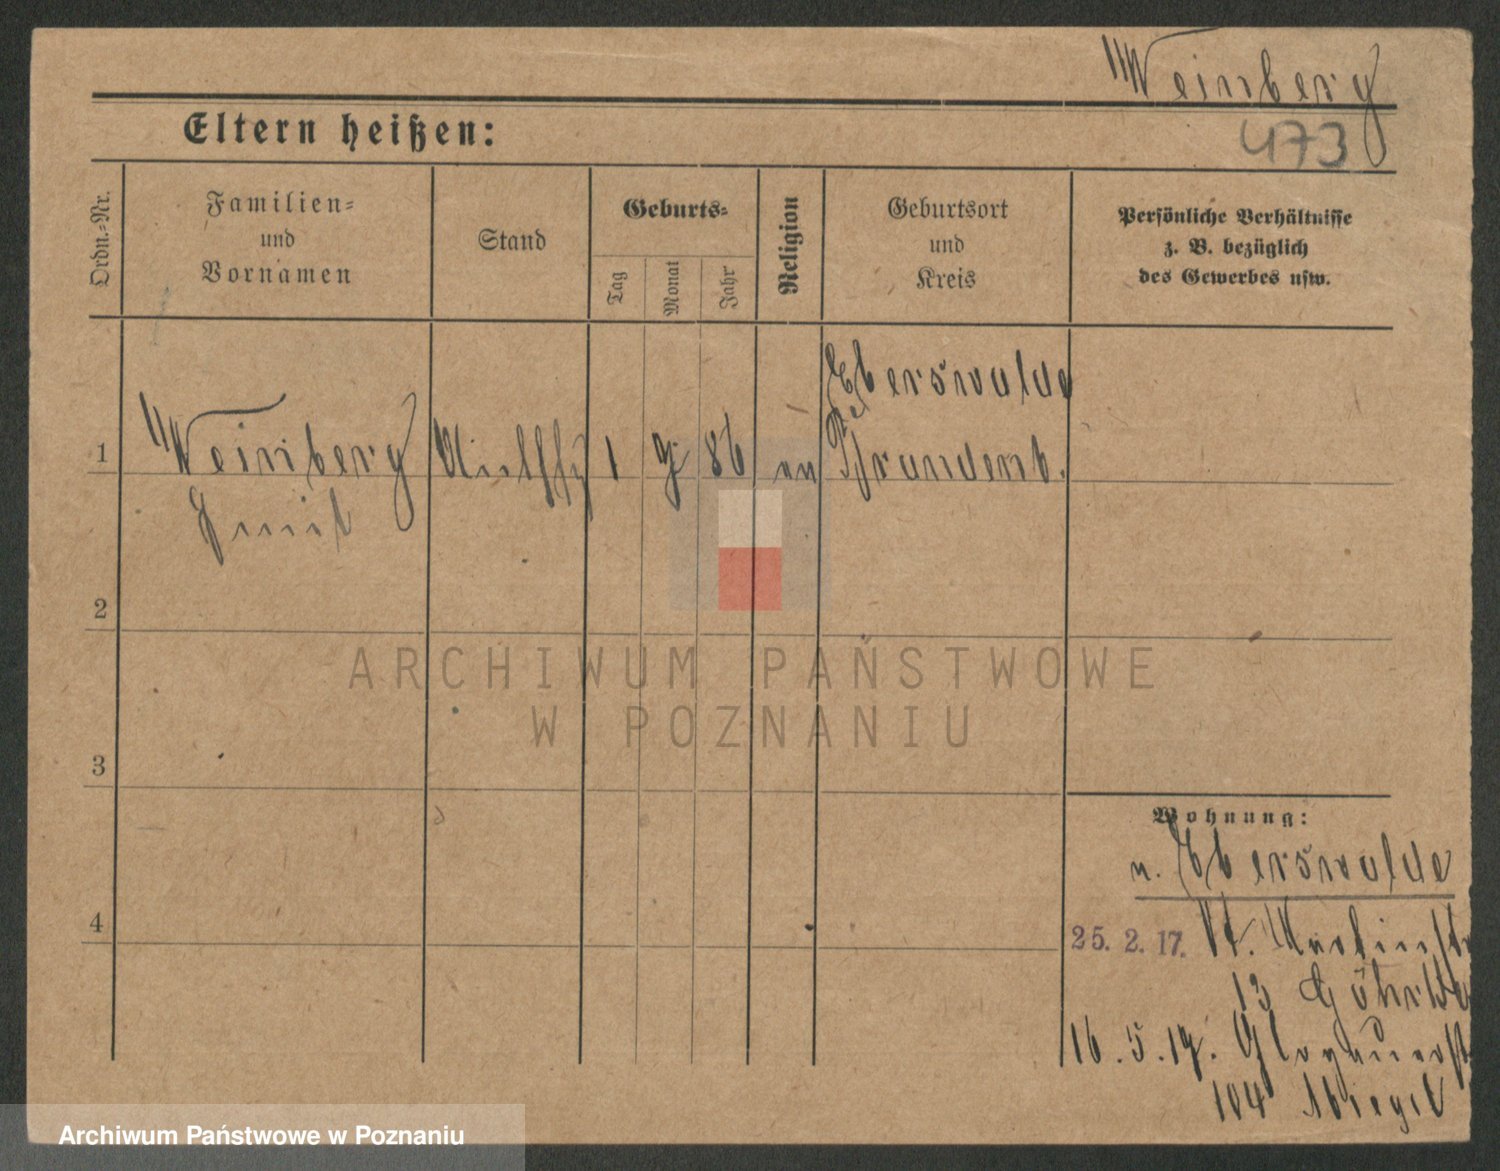 Weinberg
473
Eltern heißen:
Ordn.-Nr.
Familien-
und
Vornamen
Stand
Geburts-
Tag
Monat
Jahr
Religion
Geburtsort
und
Kreis
Persönliche Verhältnisse
z. B. bezüglich
des Gewerbes usw.
1
Weinberg
1
86
Eberswalde
Brandenb.
2
3
4
Wohnung:
n. Eberswalde
25. 2. 17. St. Martinstr
13
16. 5. 17. Glogauerstr
104
ARCHIWUM PAŃSTWOWE
W POZNANIU
Archiwum Państwowe w Poznaniu